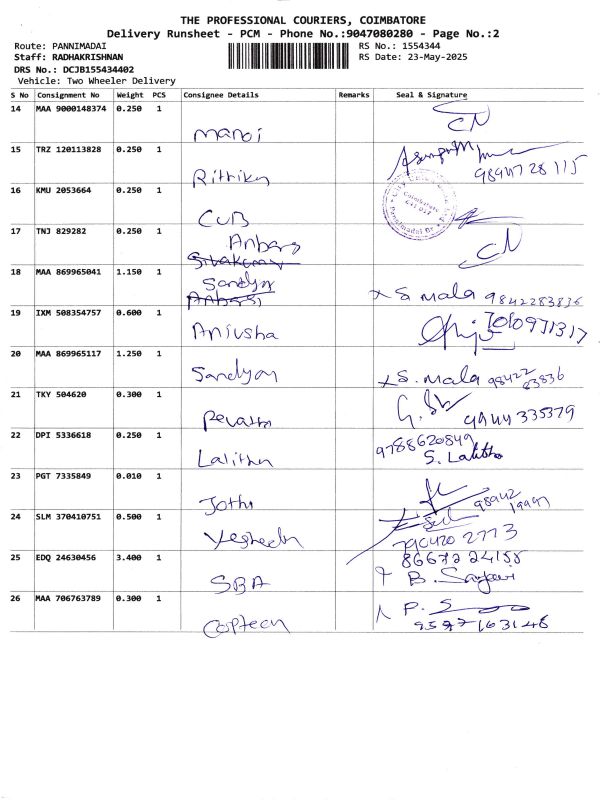 THE PROFESSIONAL COURIERS, COIMBATORE
Delivery Runsheet - PCM - Phone No.:9047080280 - Page No.:2
Route: PANNIMADAI
RS No.: 1554344
Staff: RADHAKRISHNAN
RS Date: 23-May-2025
DRS No.: DCJB155434402
Vehicle: Two Wheeler Delivery
S No Consignment No Weight PCS Consignee Details Remarks Seal & Signature
14 MAA 9000148374 0.250 1
manoj
CN
15 TRZ 120113828 0.250 1
Rithika
98947 28 115
16 KMU 2053664 0.250 1
CUB
17 TNJ 829282 0.250 1
Anbarg
Sivakumar
CN
18 MAA 869965041 1.150 1
Sandya
Anbarsi
x S. mala 9842283836
19 IXM 508354757 0.600 1
Aniusha
7010971317
20 MAA 869965117 1.250 1
Sandya
x S. mala 98422
83836
21 TKY 504620 0.300 1
Revathi
9944 335379
22 DPI 5336618 0.250 1
Lalitha
9788620849
S. Lalitha
23 PGT 7335849 0.010 1
Jothi
98942
19997
24 SLM 370410751 0.500 1
790420 2773
25 EDQ 24630456 3.400 1
SBA
86672 24155
B. Sanjeevi
26 MAA 706763789 0.300 1
Coptech
P. S
9597163148